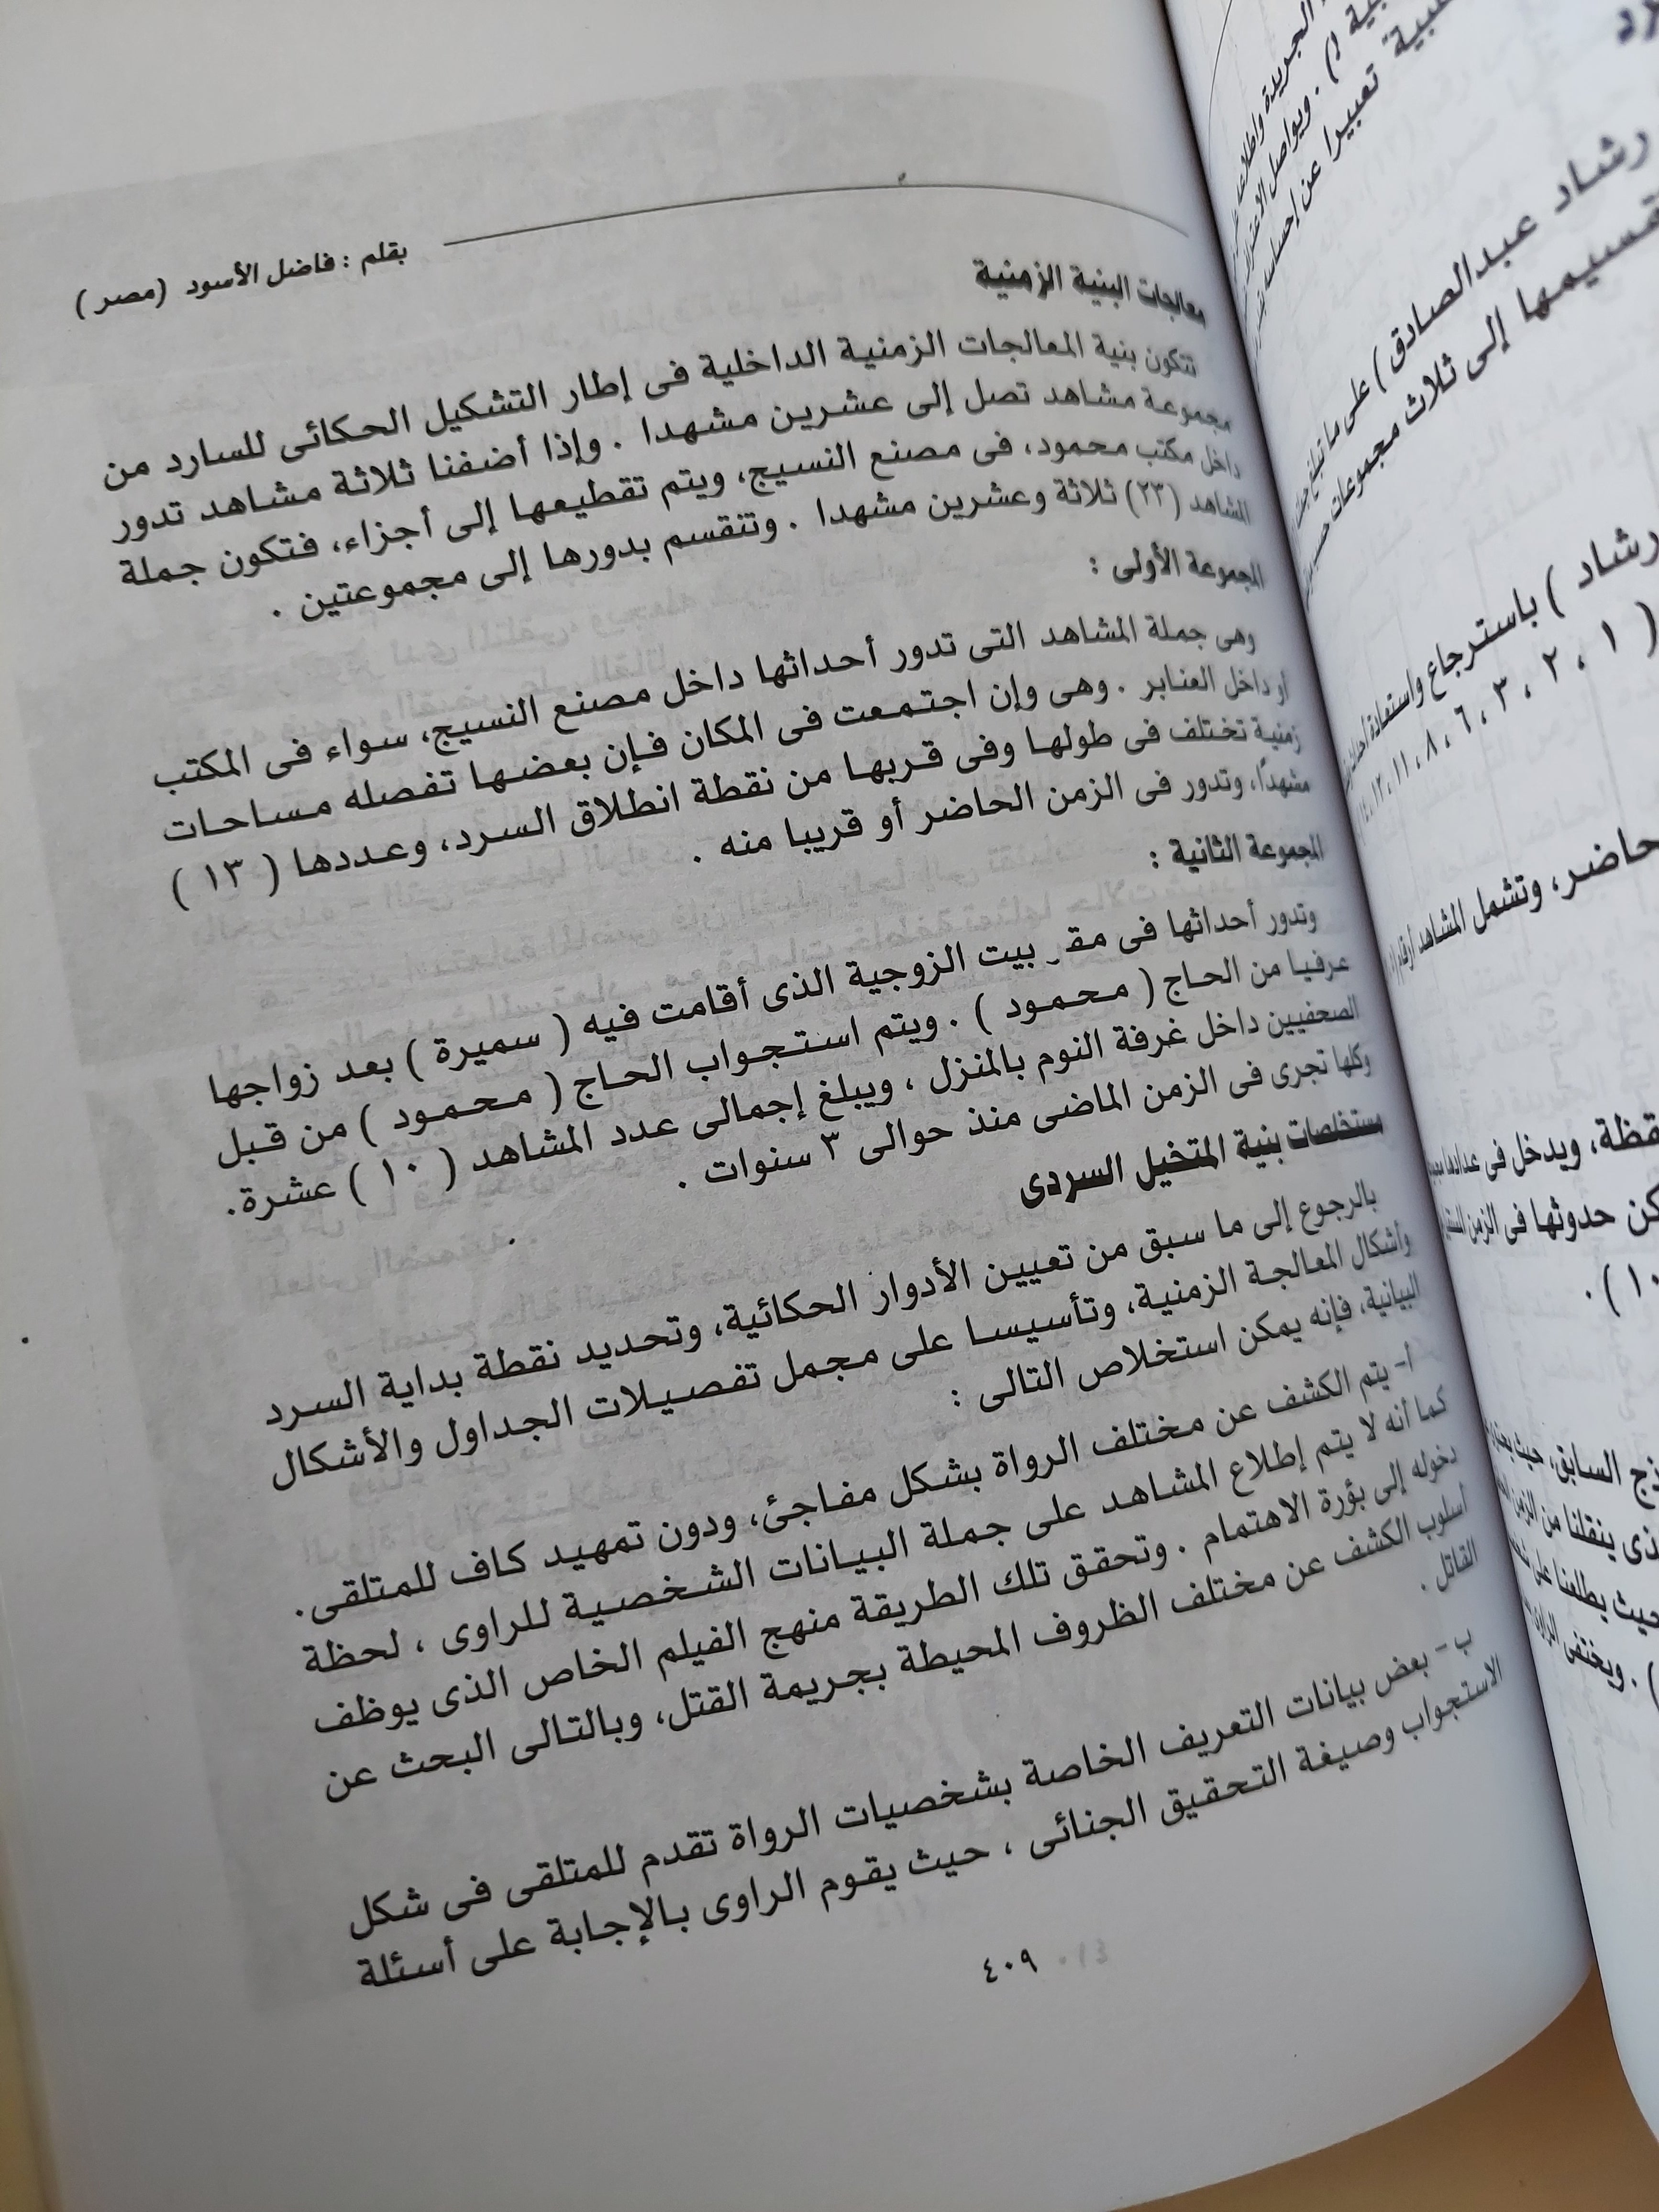 بقلم : فاضل الأسود (مصر)
معالجات البنية الزمنية
تتكون بنية المعالجات الزمنية الداخلية فى إطار التشكيل الحكائى للسارد من
مجموعة مشاهد تصل إلى عشرين مشهدا . وإذا أضفنا ثلاثة مشاهد تدور
داخل مكتب محمود، فى مصنع النسيج، ويتم تقطيعها إلى أجزاء، فتكون جملة
المشاهد (٢٣) ثلاثة وعشرين مشهدا . وتنقسم بدورها إلى مجموعتين .
المجموعة الأولى :
وهى جملة المشاهد التى تدور أحداثها داخل مصنع النسيج، سواء فى المكتب
أو داخل العنابر . وهى وإن اجتمعت فى المكان فإن بعضها تفصله مساحات
زمنية تختلف فى طولها وفى قربها من نقطة انطلاق السرد، وعددها ( ١٣ )
مشهدًا، وتدور فى الزمن الحاضر أو قريبا منه .
المجموعة الثانية :
وتدور أحداثها فى بيت الزوجية الذى أقامت فيه ( سميرة ) بعد زواجها
عرفيا من الحاج ( محمود ) . ويتم استجواب الحاج ( محمود ) من قبل
الصحفيين داخل غرفة النوم بالمنزل ، ويبلغ إجمالى عدد المشاهد ( ١٠ ) عشرة.
وكلها تجرى فى الزمن الماضى منذ حوالى ٣ سنوات .
مستخلصات بنية المتخيل السردى
بالرجوع إلى ما سبق من تعيين الأدوار الحكائية، وتحديد نقطة بداية السرد
وأشكال المعالجة الزمنية، وتأسيسا على مجمل تفصيلات الجداول والأشكال
البيانية، فإنه يمكن استخلاص التالى :
أ- يتم الكشف عن مختلف الرواة بشكل مفاجئ، ودون تمهيد كاف للمتلقى.
كما أنه لا يتم إطلاع المشاهد على جملة البيانات الشخصية للراوى ، لحظة
دخوله إلى بؤرة الاهتمام . وتحقق تلك الطريقة منهج الفيلم الخاص الذى يوظف
أسلوب الكشف عن مختلف الظروف المحيطة بجريمة القتل، وبالتالى البحث عن
القاتل .
ب - بعض بيانات التعريف الخاصة بشخصيات الرواة تقدم للمتلقى فى شكل
الاستجواب وصيغة التحقيق الجنائى ، حيث يقوم الراوى بالإجابة على أسئلة
٤٠٩
الجريدة
. ويواصل
تعبيرا عن إحساسه
رشاد عبدالصادق ) على ما
تقسيمها إلى ثلاث مجموعات
رشاد ) باسترجاع واستعادة
( ١ ، ٢ ، ٣ ، ٦ ، ٨ ، ١١ ، ١٢
حاضر، وتشمل المشاهد
ويدخل فى
حدوثها فى الزمن
١٠ ) .
السابق، حيث
ينقلنا من الزمن
حيث يطلعنا على
) . ويختفى